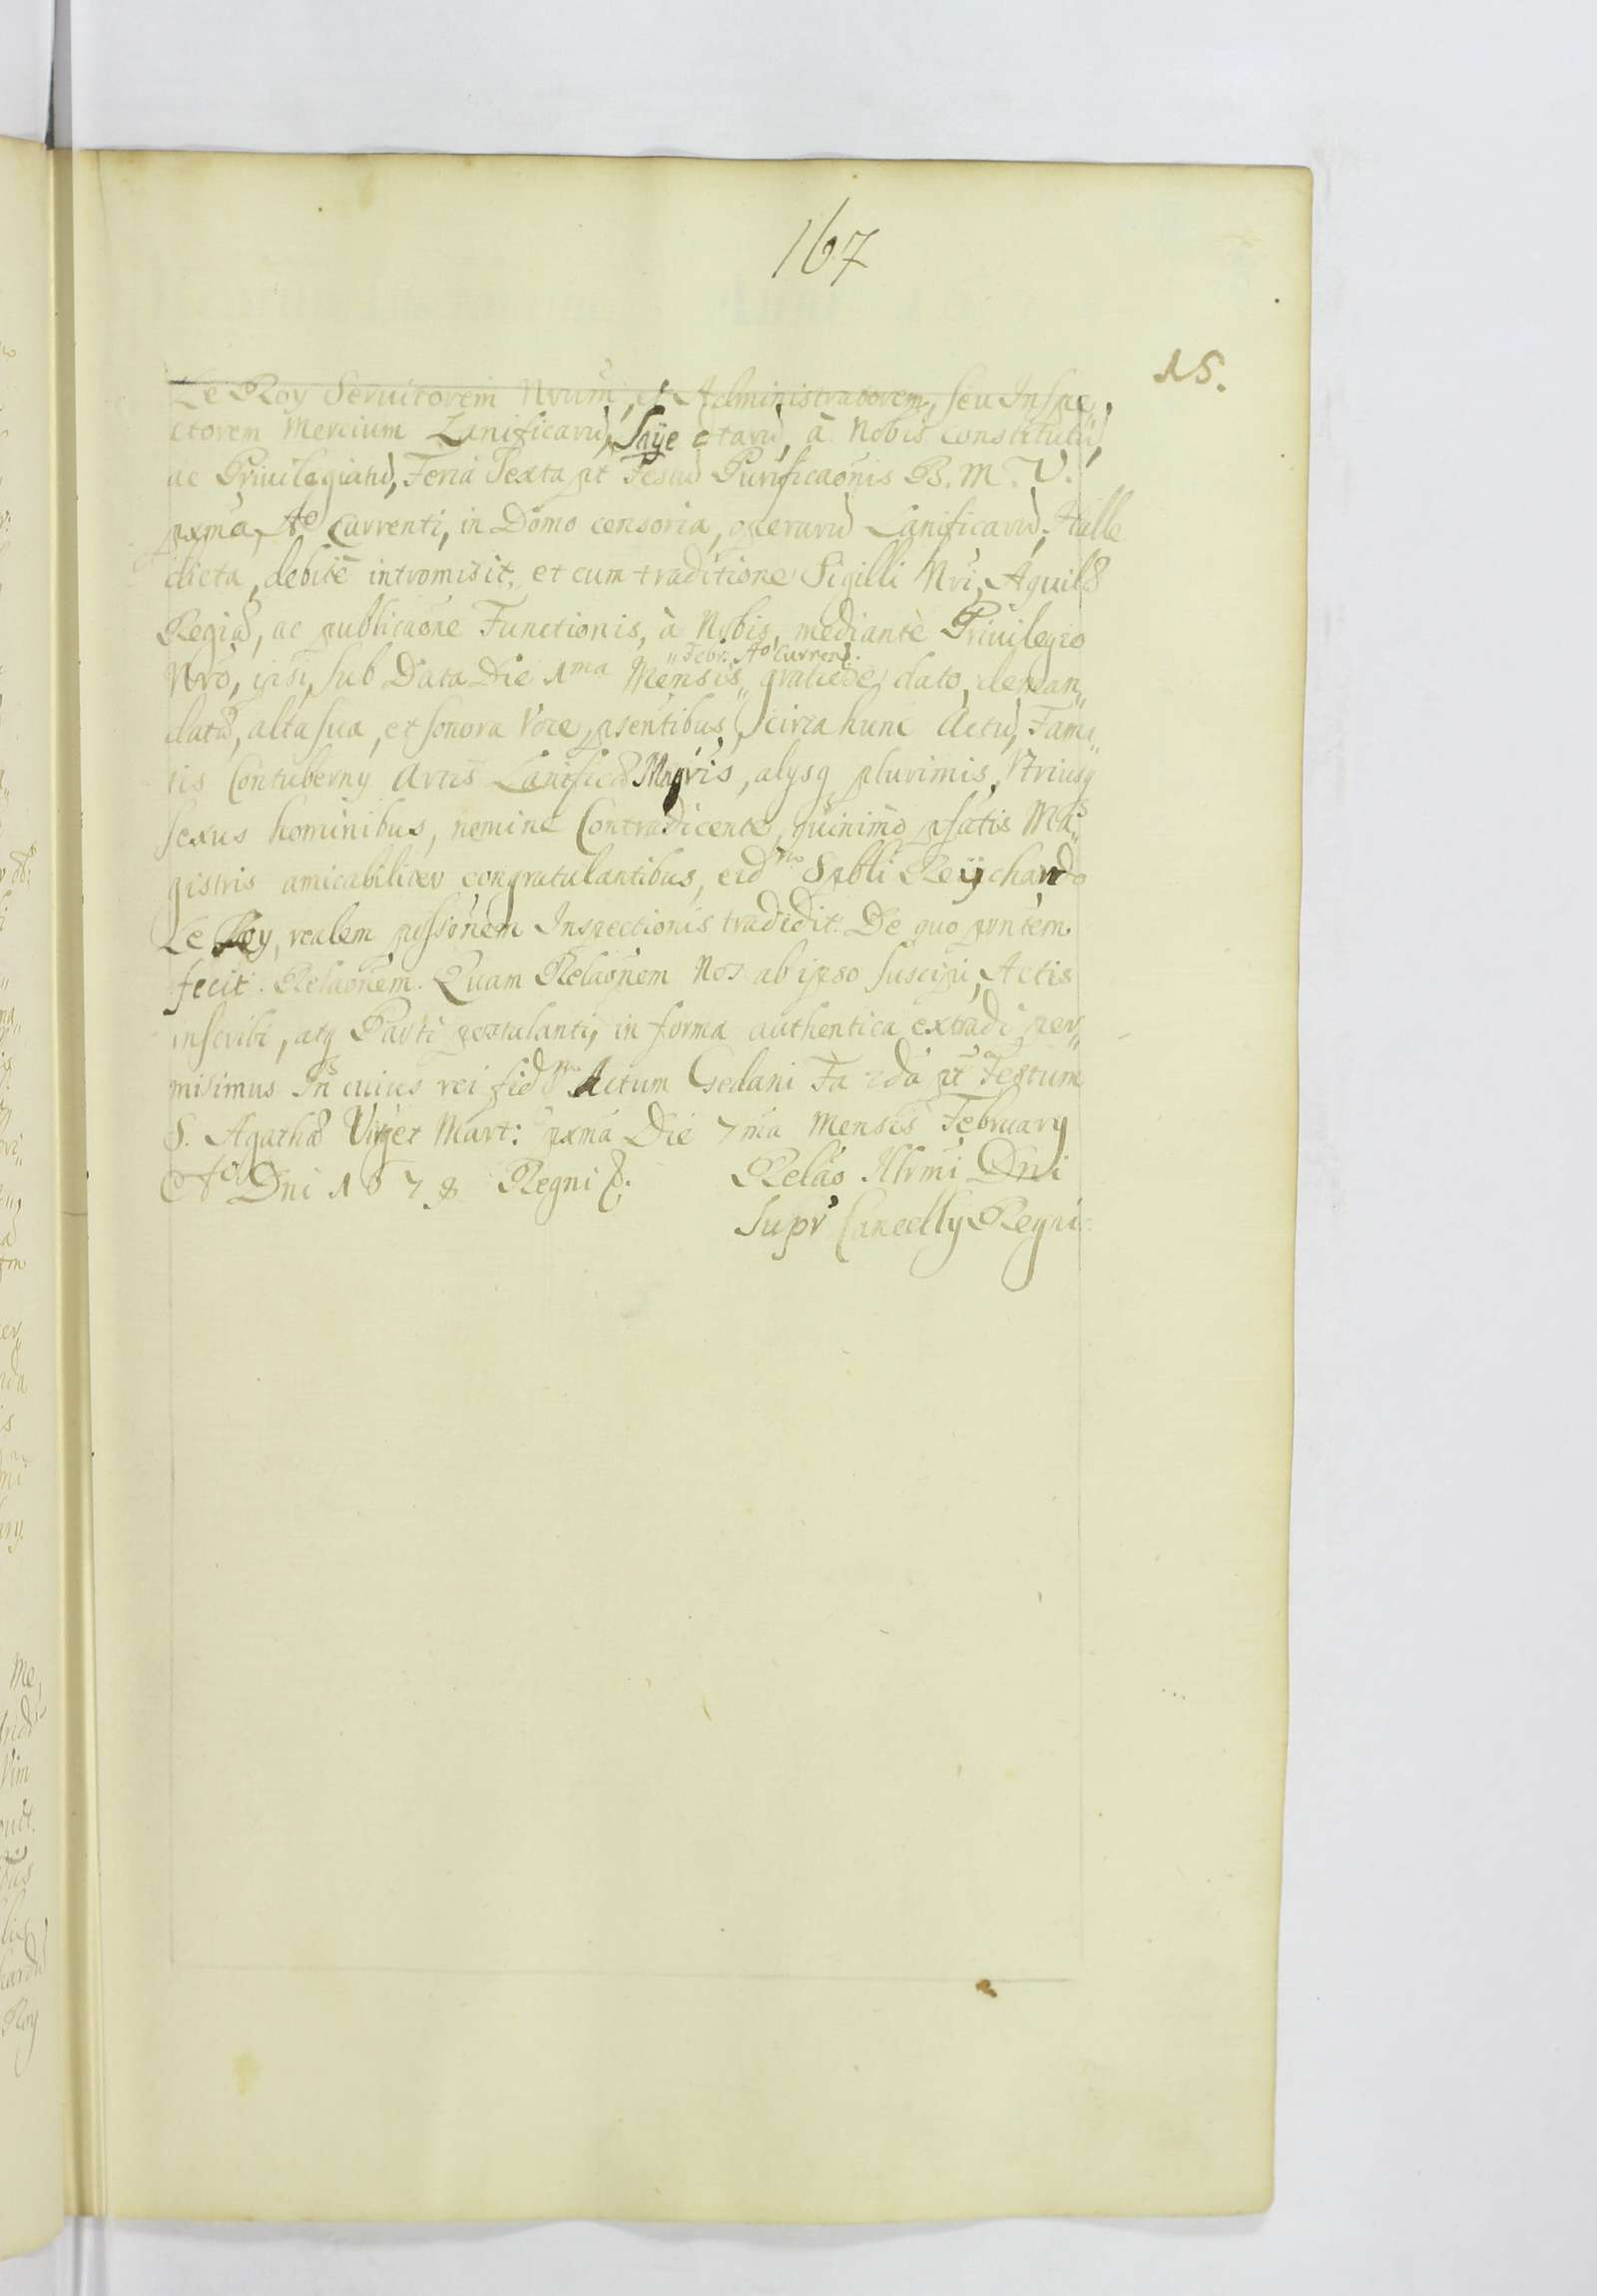 167
15.
Le Roy Seruitorem Nrum, et Administratorem, seu Inspe,
ctorem Mercium Lanificaru, Saije ctaru, à Nobis constitutu,
ac Priuilegiatu, Feria Sexta pt Festu Purificaonis B. M. V.
pxma, Ao Currenti, in Domo censoria, operaru Lanificaru, Halle
dicta, debitè intromisit, et cum traditione Sigilli Nri, Aquilæ
Regiæ, ac publicaone Functionis, à Nobis, mediante Priuilegio
„Febr: Ao Curren:
Nro, ipsi, sub Data Die 1ma Mensis„ gratiose dato, deman„
datæ, alta sua, et sonora Voce, psentibus, circa hunc Actu, Fama„
tis Contuberny Artis Lanificæ Mágris, alysq plurimis, Vtriusq
sexus hominibus, nemine Contradicente, quinimò psatis Ma„
gistris amicabiliter congratulantibus, eidm Spbli Reijchardo
Le Roy, realem possonem Inspectionis tradidit. De quo pntem
fecit. Relaonem. Quam Relaonem Nos ab ipso suscipi, Actis
inscribi, atq Parti postulanti, in forma authentica extradi per„
misimus In cuius rei fidm Actum Gedani Fa 2da pt Festum
S. Agathæ Virg et Mart: pxma Die 7ma Mensis February
Ao Dni 1678 Regni &.
Relao Illrmi Dni
Supr Cancelly Regni